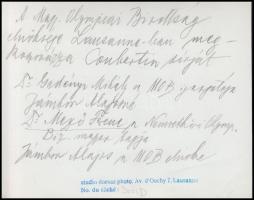 A Magy. Olympiai Bizottság
elnöksége Lausanne-ban meg-
koszorúzza Coubertin sírját
Dr Mihály a MOB
Jámbor Alajosné
Dr Mező Ferenc a Nemzetközi Olymp.
Biz. magyar tagja
Jámbor Alajos a MOB elnöke
studio dorsaz photo, Av. d'Ouchy 7, Lausanne
No du cliché: